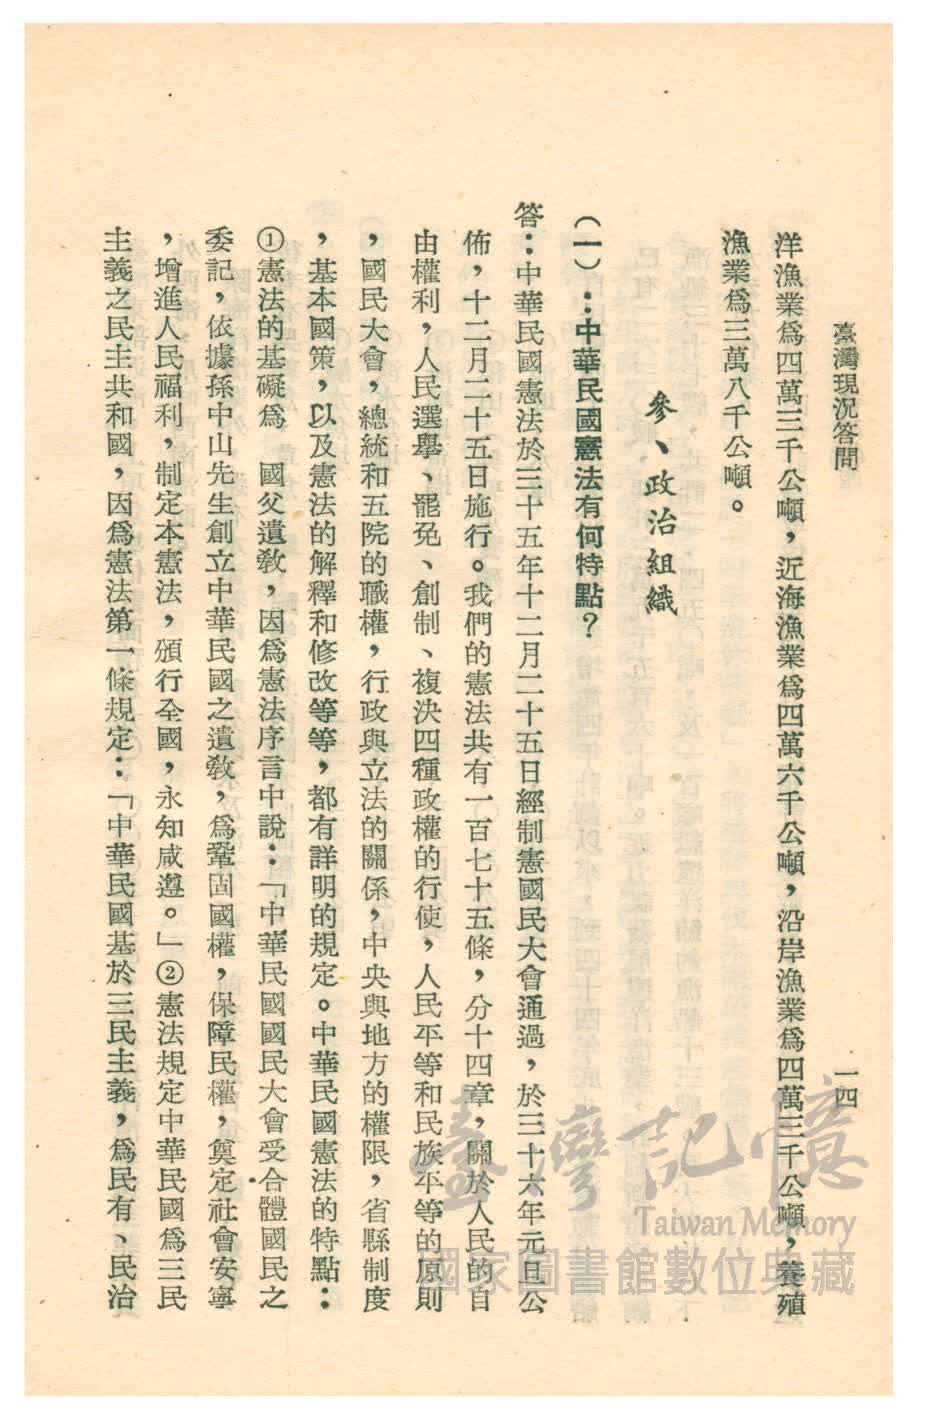 臺灣現況答問
一四
洋漁業爲四萬三千公噸，近海漁業爲四萬六千公噸，沿岸漁業爲四萬三千公噸，養殖
漁業爲三萬八千公噸。
參、政治組織
（一）：中華民國憲法有何特點？
答：中華民國憲法於三十五年十二月二十五日經制憲國民大會通過，於三十六年元旦公
佈，十二月二十五日施行。我們的憲法共有一百七十五條，分十四章，關於人民的自
由權利，人民選舉、罷免、創制、複決四種政權的行使，人民平等和民族平等的原則
，國民大會，總統和五院的職權，行政與立法的關係，中央與地方的權限，省縣制度
，基本國策，以及憲法的解釋和修改等等，都有詳明的規定。中華民國憲法的特點：
①憲法的基礎爲　國父遺敎，因爲憲法序言中說：「中華民國國民大會受合體國民之
委記，依據孫中山先生創立中華民國之遺敎，爲鞏固國權，保障民權，奠定社會安寧
，增進人民福利，制定本憲法，頒行全國，永知咸遵。」②憲法規定中華民國爲三民
主義之民主共和國，因爲憲法第一條規定：「中華民國基於三民主義，爲民有、民治
臺灣記憶
Taiwan Memory
國家圖書館數位典藏